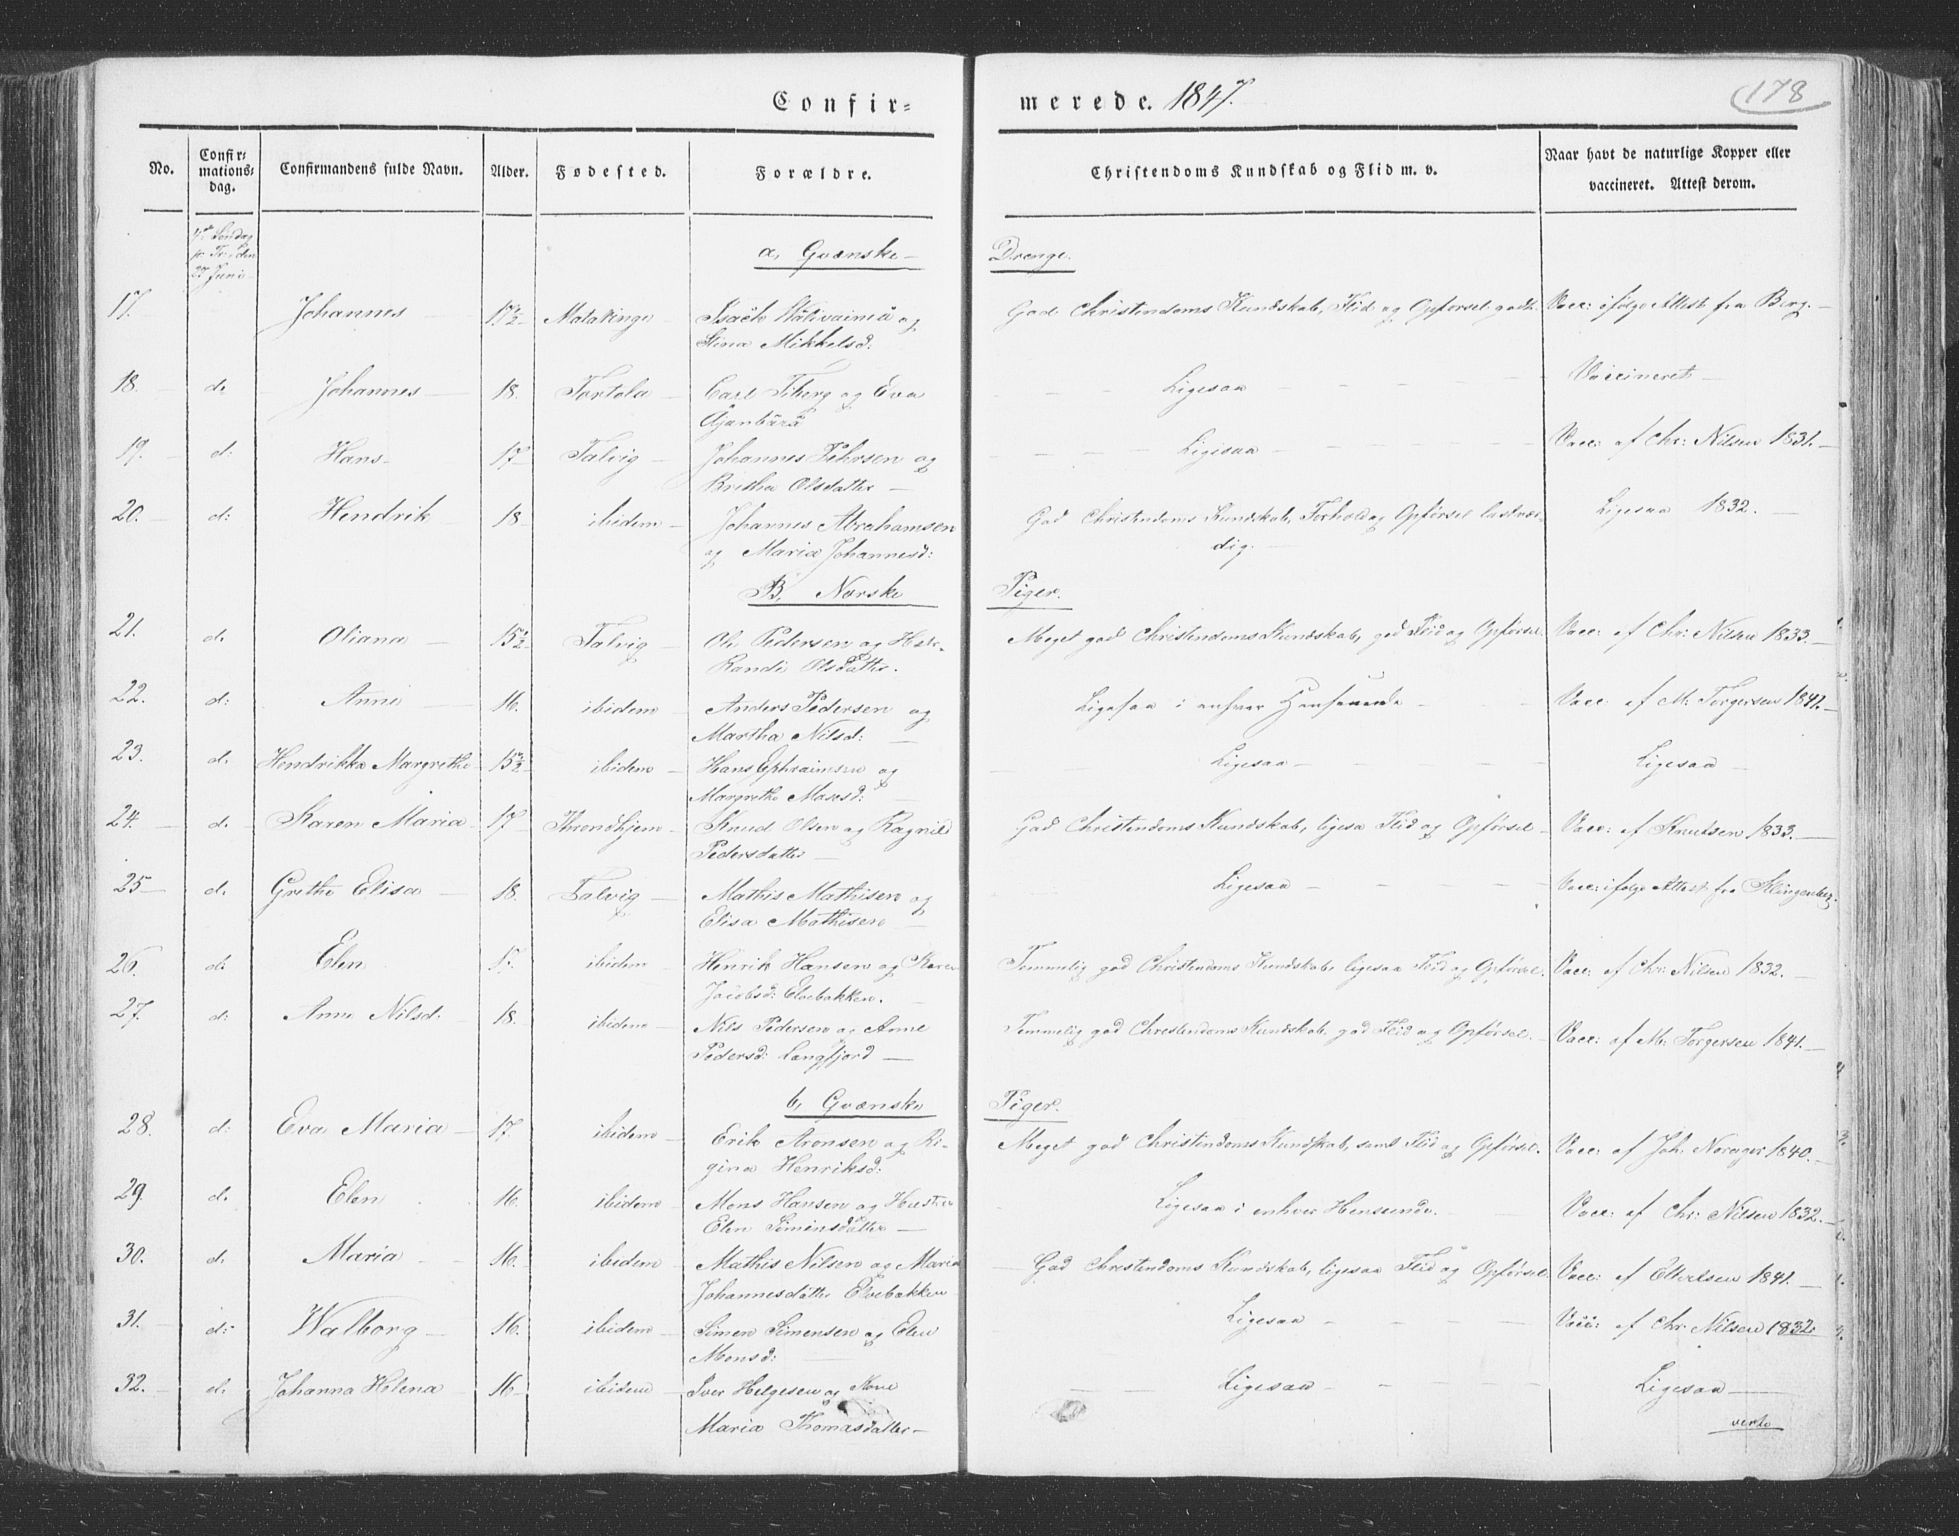 Confir=
merede. 1847.
178
No.
Confir=
mations=
dag.
Confirmandens fulde Navn.
Alder.
Fødested.
Forældre.
Christendoms Kundskab og Flid m. v.
Naar havt de naturlige Kopper eller
vaccineret. Attest derom.
4de Søndag
27 Juni
a, Qvænske Drenge.
17. Johannes 17½ Matakinge Isach og God Christendoms Kundskab, Flid og Opførsel godt. Vacc: ifølge Attest fra Berg.
Stina Mikkelsd:
18. d. Johannes 18. Tortola Carl Fiberg og Eva Ligesaa Vaccineret
19. d: Hans 17 Talvig Johannes og Ligesaa Vacc: af Chr: Nilsen 1831.
Britha Olsdatter
20. d: Hendrik 18. ibidem Johannes Abrahamsen God Christendoms Kundskab, Forhold og Opførsel lastvær- Ligesaa 1832.
og Maria Johannesd: dig.
B, Norske Piger.
21. d. Oliana 15½ Talvig Ole Pedersen og Meget god Christendoms Kundskab, god Flid og Opførsel. Vacc: af Chr: Nilsen 1833.
Randi Olsdatter.
22. d: Anne 16. ibidem Anders Pedersen og Ligesaa i enhver Henseende Vacc: af M. Torgersen 1841.
Martha Nilsd:
23. d. Hendrikke Margrethe 15½ ibidem Hans Ephraimsen og Ligesaa Ligesaa
Margrethe Mosesd:
24. d. Karen Maria 17 Throndhjem Knud Olsen og Ragnild God Christendoms Kundskab, ligesaa Flid og Opførsel Vacc: af Knutsen 1833.
Pedersdatter
25 d. Grethe Elisa 18. Talvig Mathis Mathisen og Ligesaa Vacc: ifølge Attest fra Klingenberg.
Elisa Mathisen
26. d: Elen 17. ibidem Henrik Hansen og Karen Temmelig god Christendoms Kundskab, ligesaa Flid og Opførsel. Vacc: af Chr: Nilsen 1832.
Jacobsd: Elvebakken.
27. d: Anne Nilsd: 18. ibidem Nils Pedersen og Anne Temmelig god Christendoms Kundskab, god Flid og Opførsel. Vacc: af M. Torgersen 1841.
Pedersd: Langfjord
b, Qvænske Piger.
28. d: Eva Maria 17. ibidem Erik Aronsen og Re- Meget god Christendoms Kundskab, samt Flid og Opførsel. Vacc: af Joh: Norager 1840.
gina Henriksd:
29. d. Elen 16. ibidem Mons Hansen og Hustru Ligesaa i enhver Henseende. Vacc: af Chr: Nilsen 1832.
Elen Simensdatter
30. d. Maria 16. ibidem Mathis Nilsen og Maria God Christendoms Kundskab, ligesaa Flid og Opførsel. Vacc: af 1841.
Johannesdatter Elvebakken
31. d: Walborg 16. ibidem Simen Simensen og Elen Ligesaa Vacc: af Chr Nilsen 1832.
Monsd:
32. d. Johanna Helena 16 ibidem Iver Helgesen og Kone Ligesaa Ligesaa
Maria Thomasdatter
verte